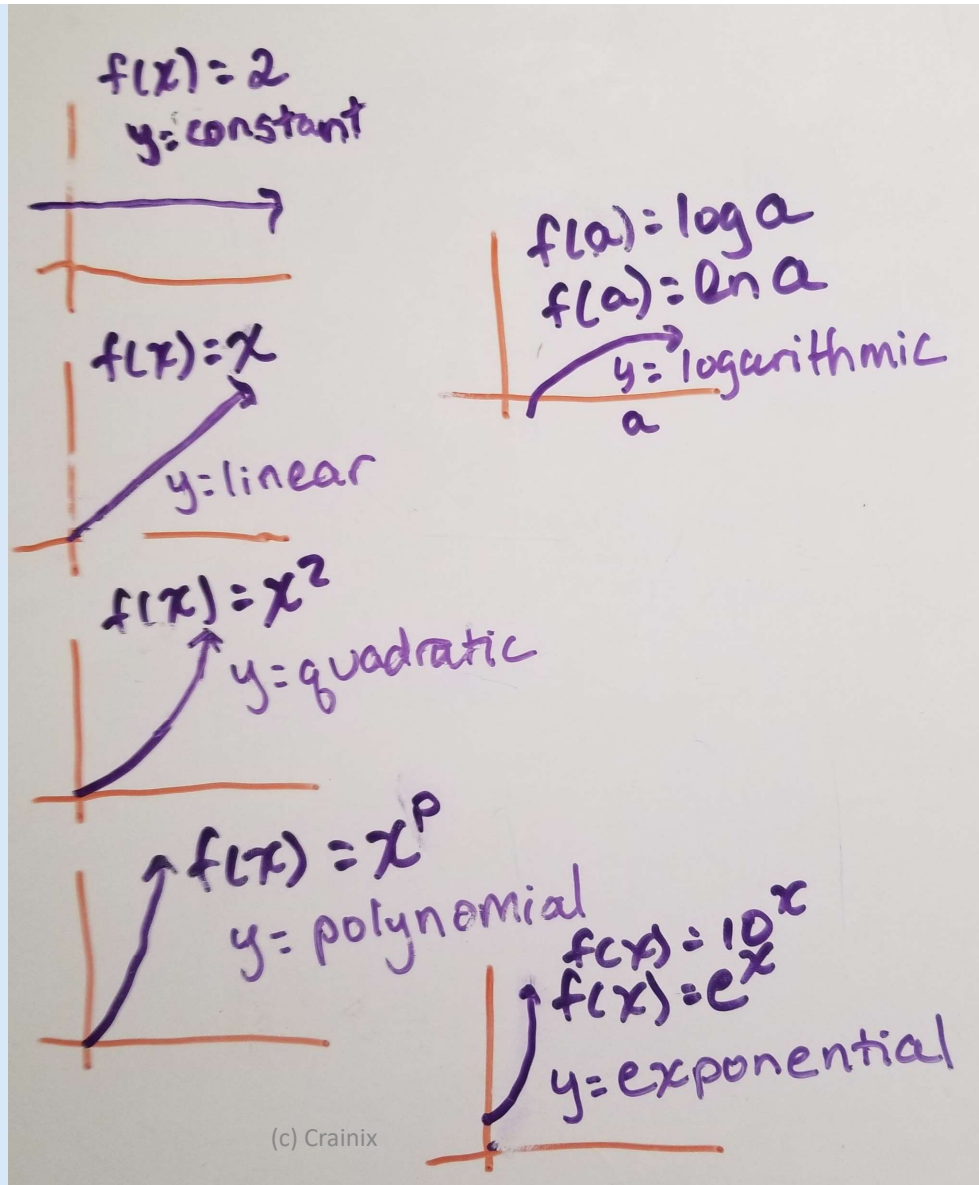 f(x) = 2
y = constant
f(x) = x
y = linear
f(x) = x²
y = quadratic
f(x) = xᵖ
y = polynomial
f(a) = log a
f(a) = ln a
y = logarithmic
a
f(x) = 10ˣ
f(x) = eˣ
y = exponential
(c) Crainix